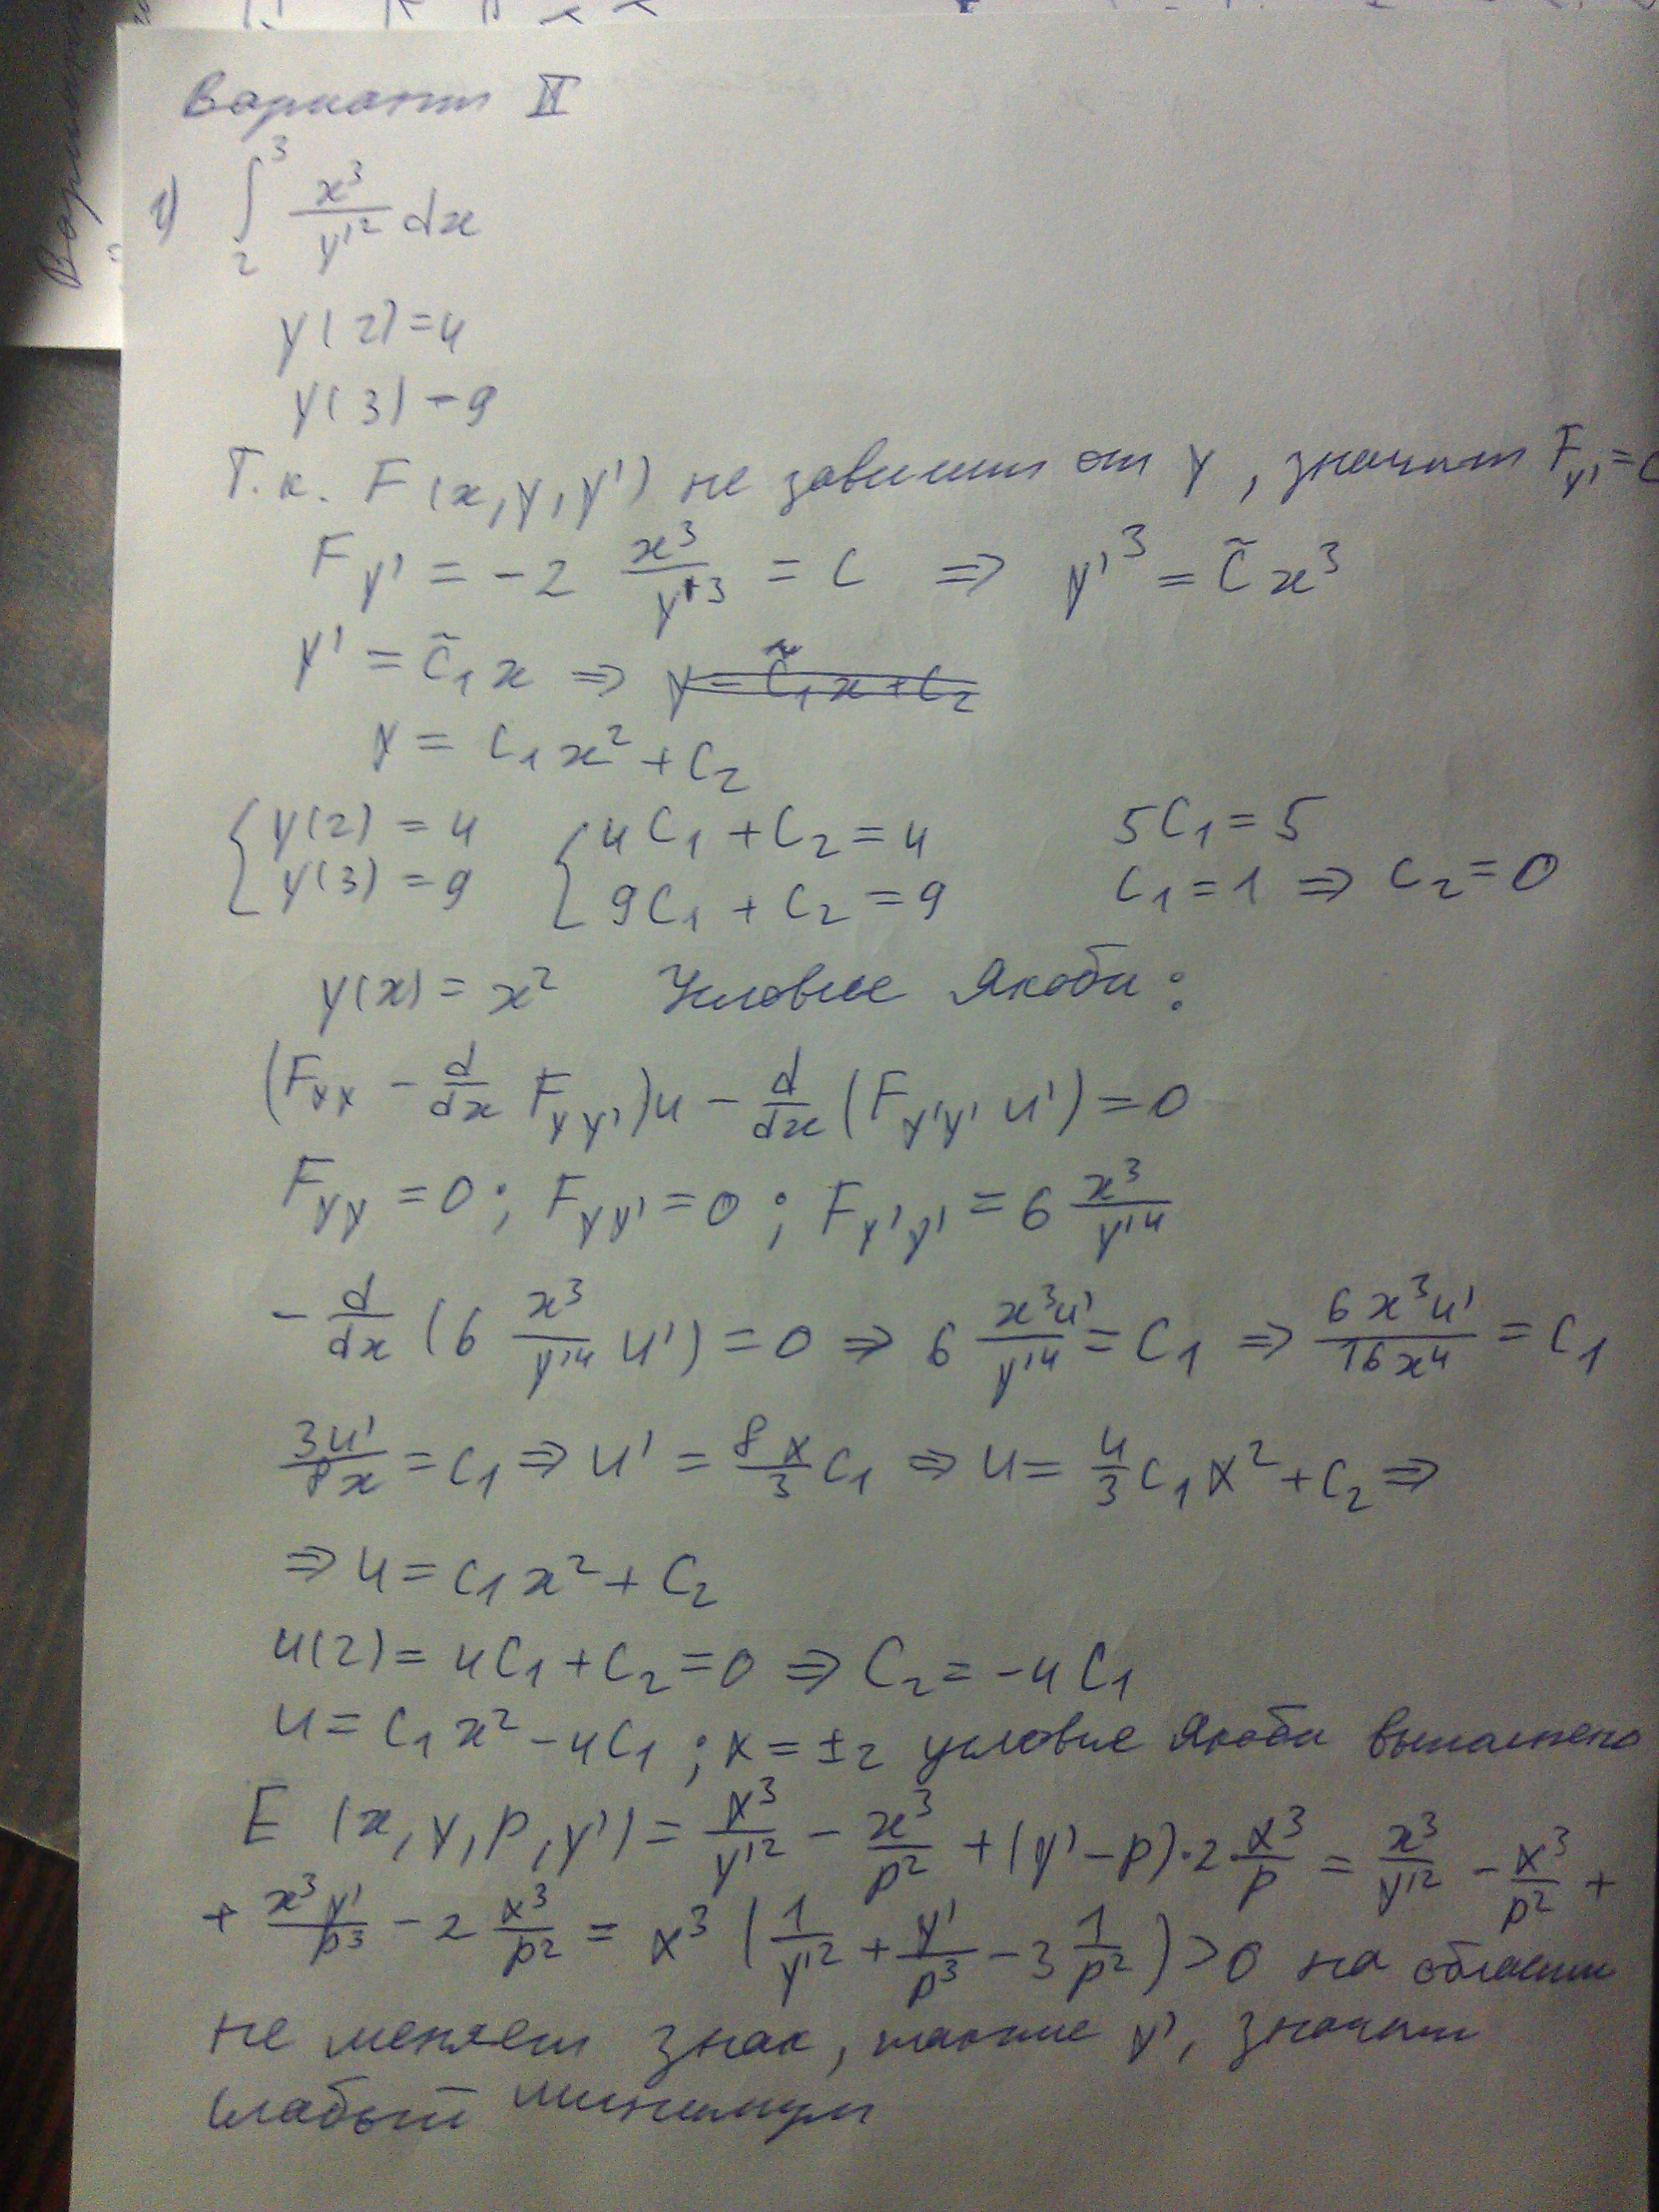 Вариант II
1) ∫₂³ x³/y'² dx
y(2)=4
y(3)=9
Т.к. F(x,y,y') не зависит от y, значит F_y'=C
F_y' = -2 x³/y'³ = C ⇒ y'³ = C̃x³
y' = C̃₁x ⇒ y = C̃₁x + C₂
y = C₁x² + C₂
{ y(2) = 4 { 4C₁ + C₂ = 4 5C₁ = 5
y(3) = 9 9C₁ + C₂ = 9 C₁ = 1 ⇒ C₂ = 0
y(x) = x² Условие Якоби:
(F_yy - d/dx F_yy')u - d/dx (F_y'y' u') = 0
F_yy = 0; F_yy' = 0; F_y'y' = 6 x³/y'⁴
- d/dx (6 x³/y'⁴ u') = 0 ⇒ 6 x³u'/y'⁴ = C₁ ⇒ 6x³u'/16x⁴ = C₁
3u'/8x = C₁ ⇒ u' = 8x/3 C₁ ⇒ u = 4/3 C₁x² + C₂ ⇒
⇒ u = C₁x² + C₂
u(2) = 4C₁ + C₂ = 0 ⇒ C₂ = -4C₁
u = C₁x² - 4C₁; x = ±2 условие Якоби выполнено
E (x,y,p,y') = x³/y'² - x³/p² + (y'-p)·2 x³/p = x³/y'² - x³/p² +
+ x³y'/p³ - 2 x³/p² = x³ (1/y'² + y'/p³ - 3 1/p²) > 0 на области
не меняет знак, y', значит
слабый минимум